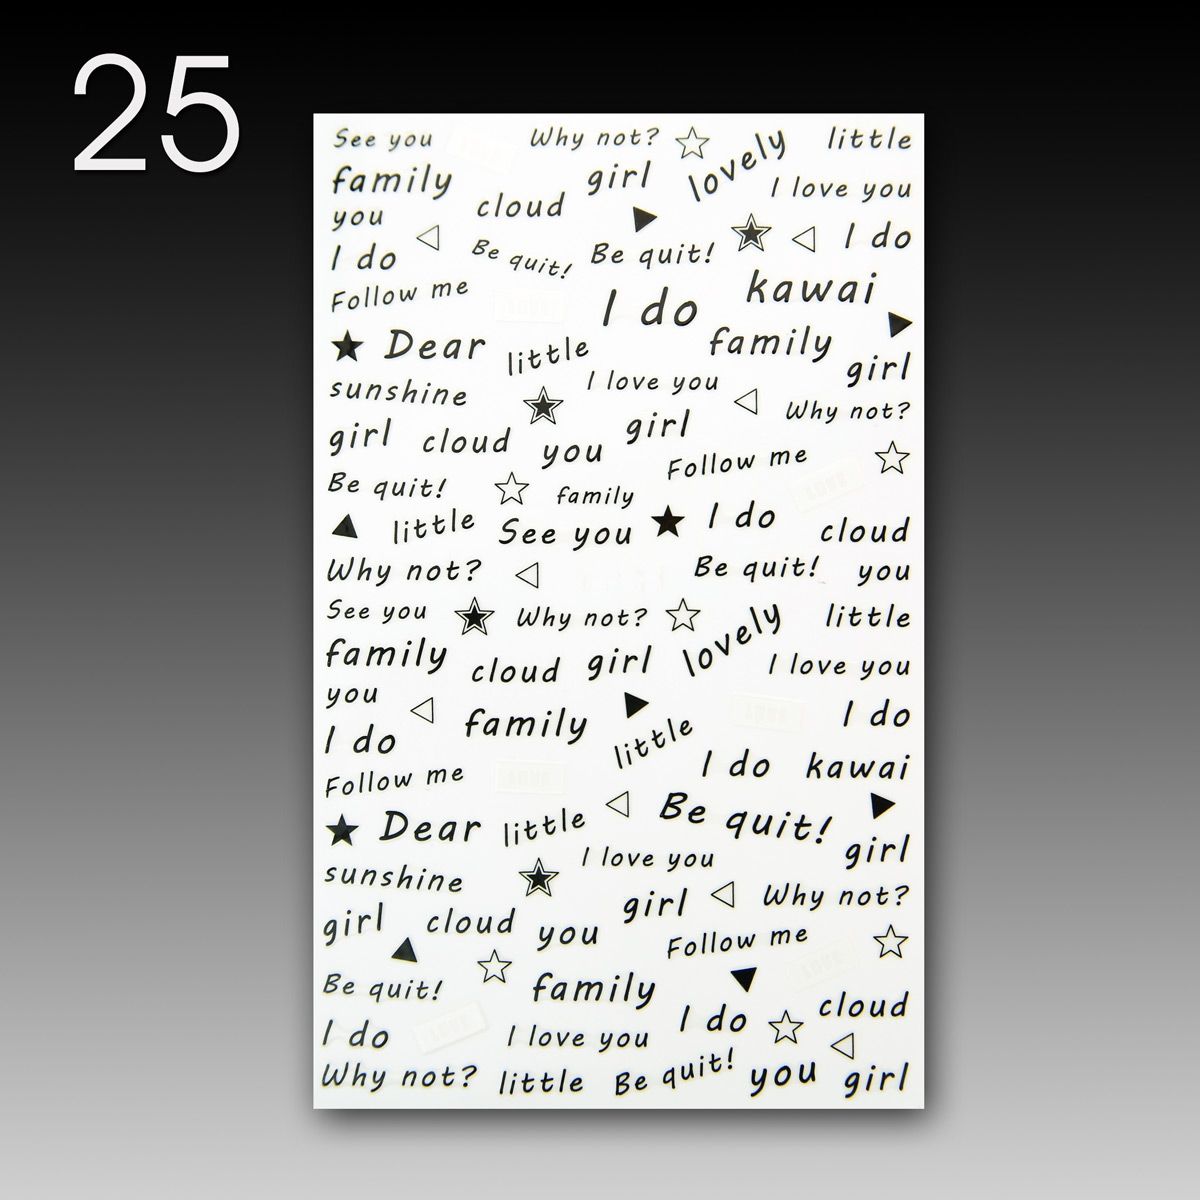 25
See you Why not? lovely little
family girl I love you
you cloud
I do Be quit! Be quit! I do
Follow me I do kawai
Dear little family girl
sunshine I love you Why not?
girl cloud you girl
Follow me
Be quit! family
little See you I do cloud
Why not? Be quit! you
See you Why not? lovely little
family cloud girl I love you
you family I do
I do little I do kawai
Follow me
Dear little Be quit! girl
sunshine I love you
girl Why not?
girl cloud you Follow me
Be quit! family cloud
I do I love you I do
Why not? little Be quit! you girl